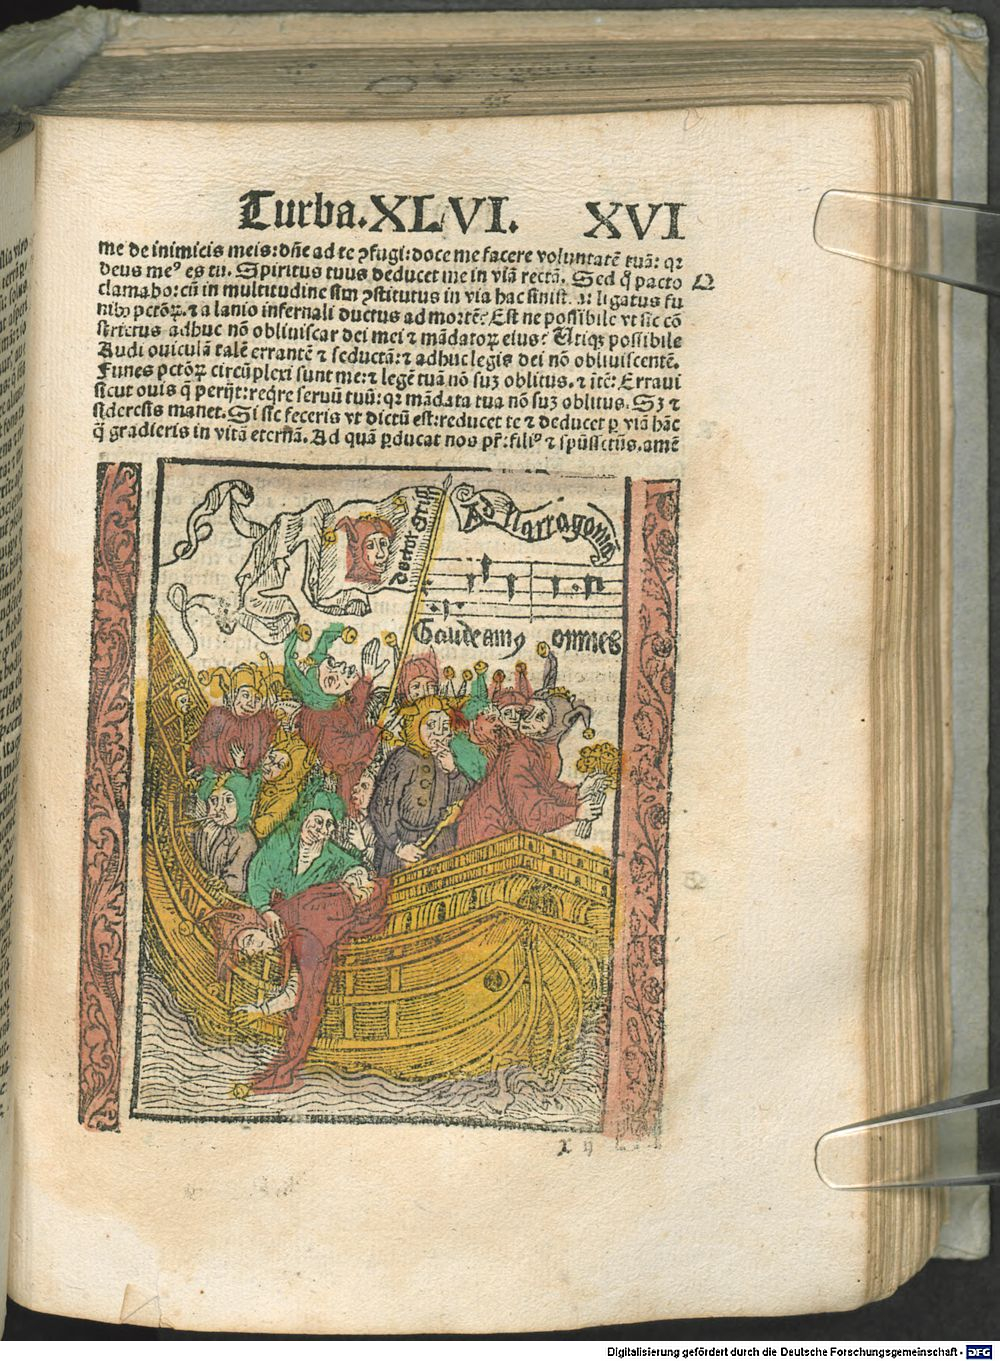 Turba.XLVI. XVI
me de inimicis meis: dñe ad te ꝯfugi: doce me facere voluntatē tuā: qꝛ
deus meꝰ es tu. Spiritus tuus deducet me in viā rectā. Sed q̊ pacto Q
clamabo: cū in multitudine sim ꝯstitutus in via hac sinist. ⁊ ligatus fu
nibꝰ pctōꝝ. ⁊ a lanio infernali ductus ad mortē: Est ne possibile vt sic cō
strictus adhuc nō obliuiscar dei mei ⁊ mādatoꝝ eius? Utiqꝫ possibile
Audi ouiculā talē errantē ⁊ seductā: ⁊ adhuc legis dei nō obliuiscentē.
Funes pctōꝝ circūplexi sunt me: ⁊ legē tuā nō suꝫ oblitus. ⁊ itē: Erraui
sicut ouis q̄ perijt: reqͥre seruū tuū: qꝛ mādata tua nō suꝫ oblitus. Sꝫ ⁊
manet. Si sic feceris vt dictū est: reducet te ⁊ deducet ꝑ viā hāc
q̄ gradieris in vitā eternā. Ad quā ꝑducat nos pr̄: filiꝰ ⁊ spūssctūs. amē
doctor Griff
Ad Narragoniā
Gaudeamꝰ omnes